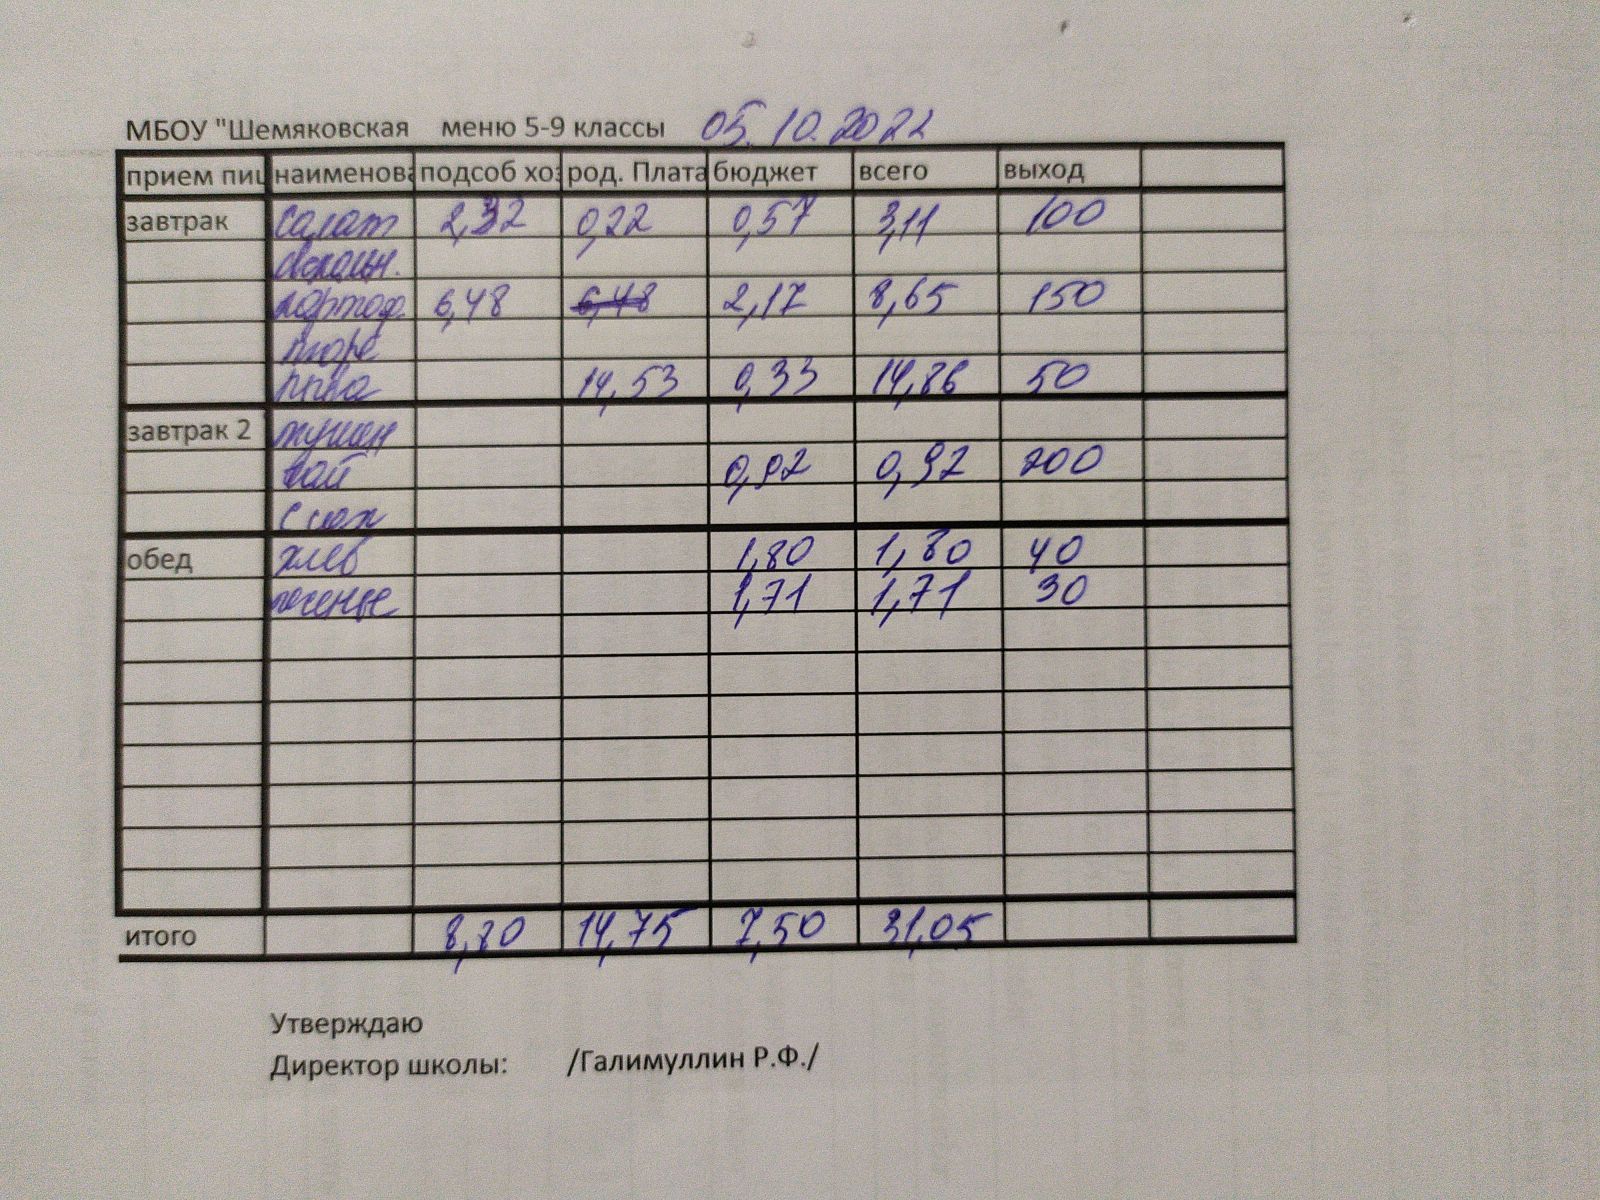 МБОУ "Шемяковская меню 5-9 классы 05.10.2022
прием пищ наименова подсоб хоз род. Плата бюджет всего выход
завтрак салат 2,32 0,22 0,57 3,11 100
свекольн.
картоф. 6,48 6,48 2,17 8,65 150
пюре
14,53 0,33 14,86 50
завтрак 2 тушен
чай 0,92 0,92 200
с сах
обед хлеб 1,80 1,80 40
печенье 1,71 1,71 30
итого 8,80 14,75 7,50 31,05
Утверждаю
Директор школы: /Галимуллин Р.Ф./